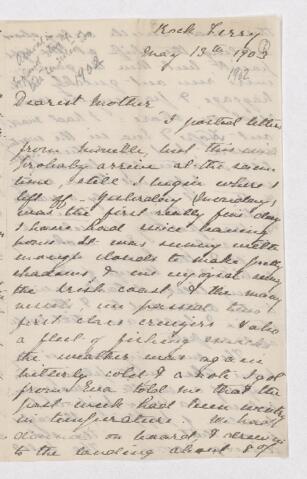 Rock Ferry
May 13th 1903
1902
Dearest Mother
I posted letter
from Moville, but this will
probably arrive at the same
time, still I begin where I
left off - Yesterday (Monday)
was the first really fine day
I have had since leaving
home. It was sunny with
enough clouds to make pretty
shadows, & we enjoyed seeing
the Irish coast, & the many
vessels & we passed two
first class cruisers & also
a fleet of fishing smacks
the weather was again
bitterly cold & a note I got
from Eva told me that the
past week had been wintry
in temperature. We had
dinner on board, & drew in
to the landing about 8 of